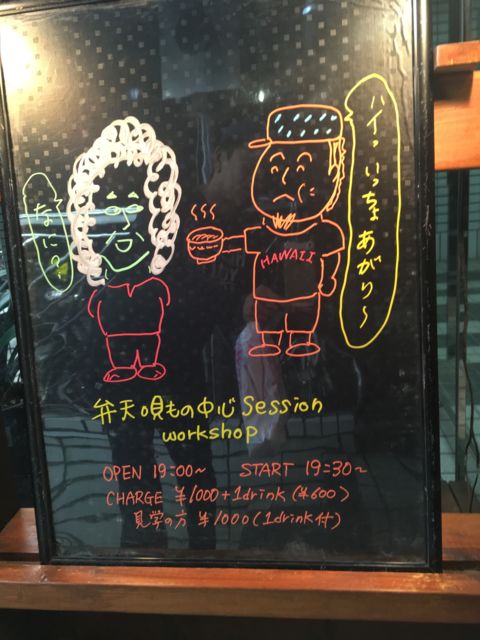 ハイっ いっちょ あがり〜
なに?
HAWAII
弁天唄もの中心 Session
workshop
OPEN 19:00~ START 19:30~
CHARGE ¥1000+1drink(¥600)
見学の方 ¥1000(1drink付)